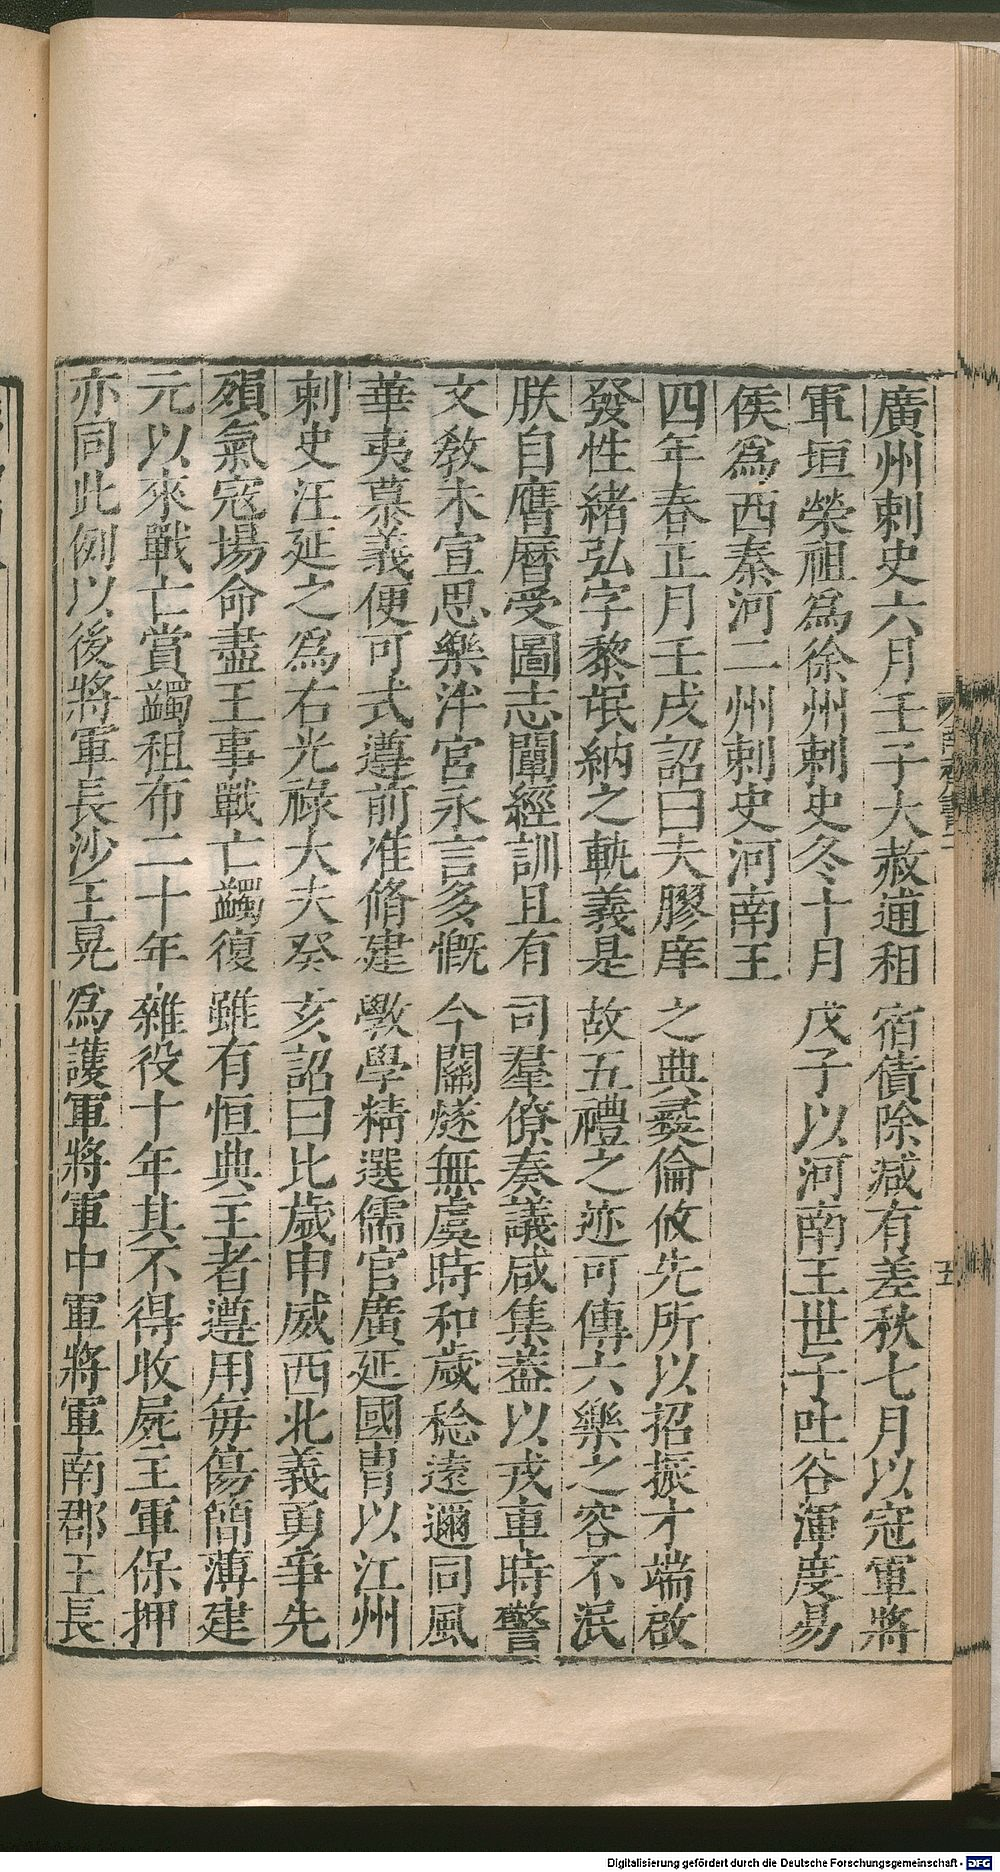 廣州刺史六月壬子大赦逋租宿債除減有差秋七月以冠軍將
軍垣榮祖爲徐州刺史冬十月戊子以河南王世子吐谷渾度易
侯爲西秦河二州刺史河南王
四年春正月壬戌詔曰夫膠庠之典彝倫攸先所以招振才端啟
發性緒弘字黎氓納之軌義是故五禮之迹可傳六樂之容不泯
朕自膺曆受圖志闡經訓且有司羣僚奏議咸集蓋以戎車時警
文教未宣思樂泮宮永言多慨今關燧無虞時和歲稔遠邇同風
華夷慕義便可式遵前准脩建斆學精選儒官廣延國胄以江州
刺史汪延之爲右光祿大夫癸亥詔曰比歲申威西北義勇爭先
殞氣寇場命盡王事戰亡蠲復雖有恒典主者遵用每傷簡薄建
元以來戰亡賞蠲租布二十年雜役十年其不得收屍主軍保押
亦同此例以後將軍長沙王晃爲護軍將軍中軍將軍南郡王長
五
Digitalisierung gefördert durch die Deutsche Forschungsgemeinschaft - DFG